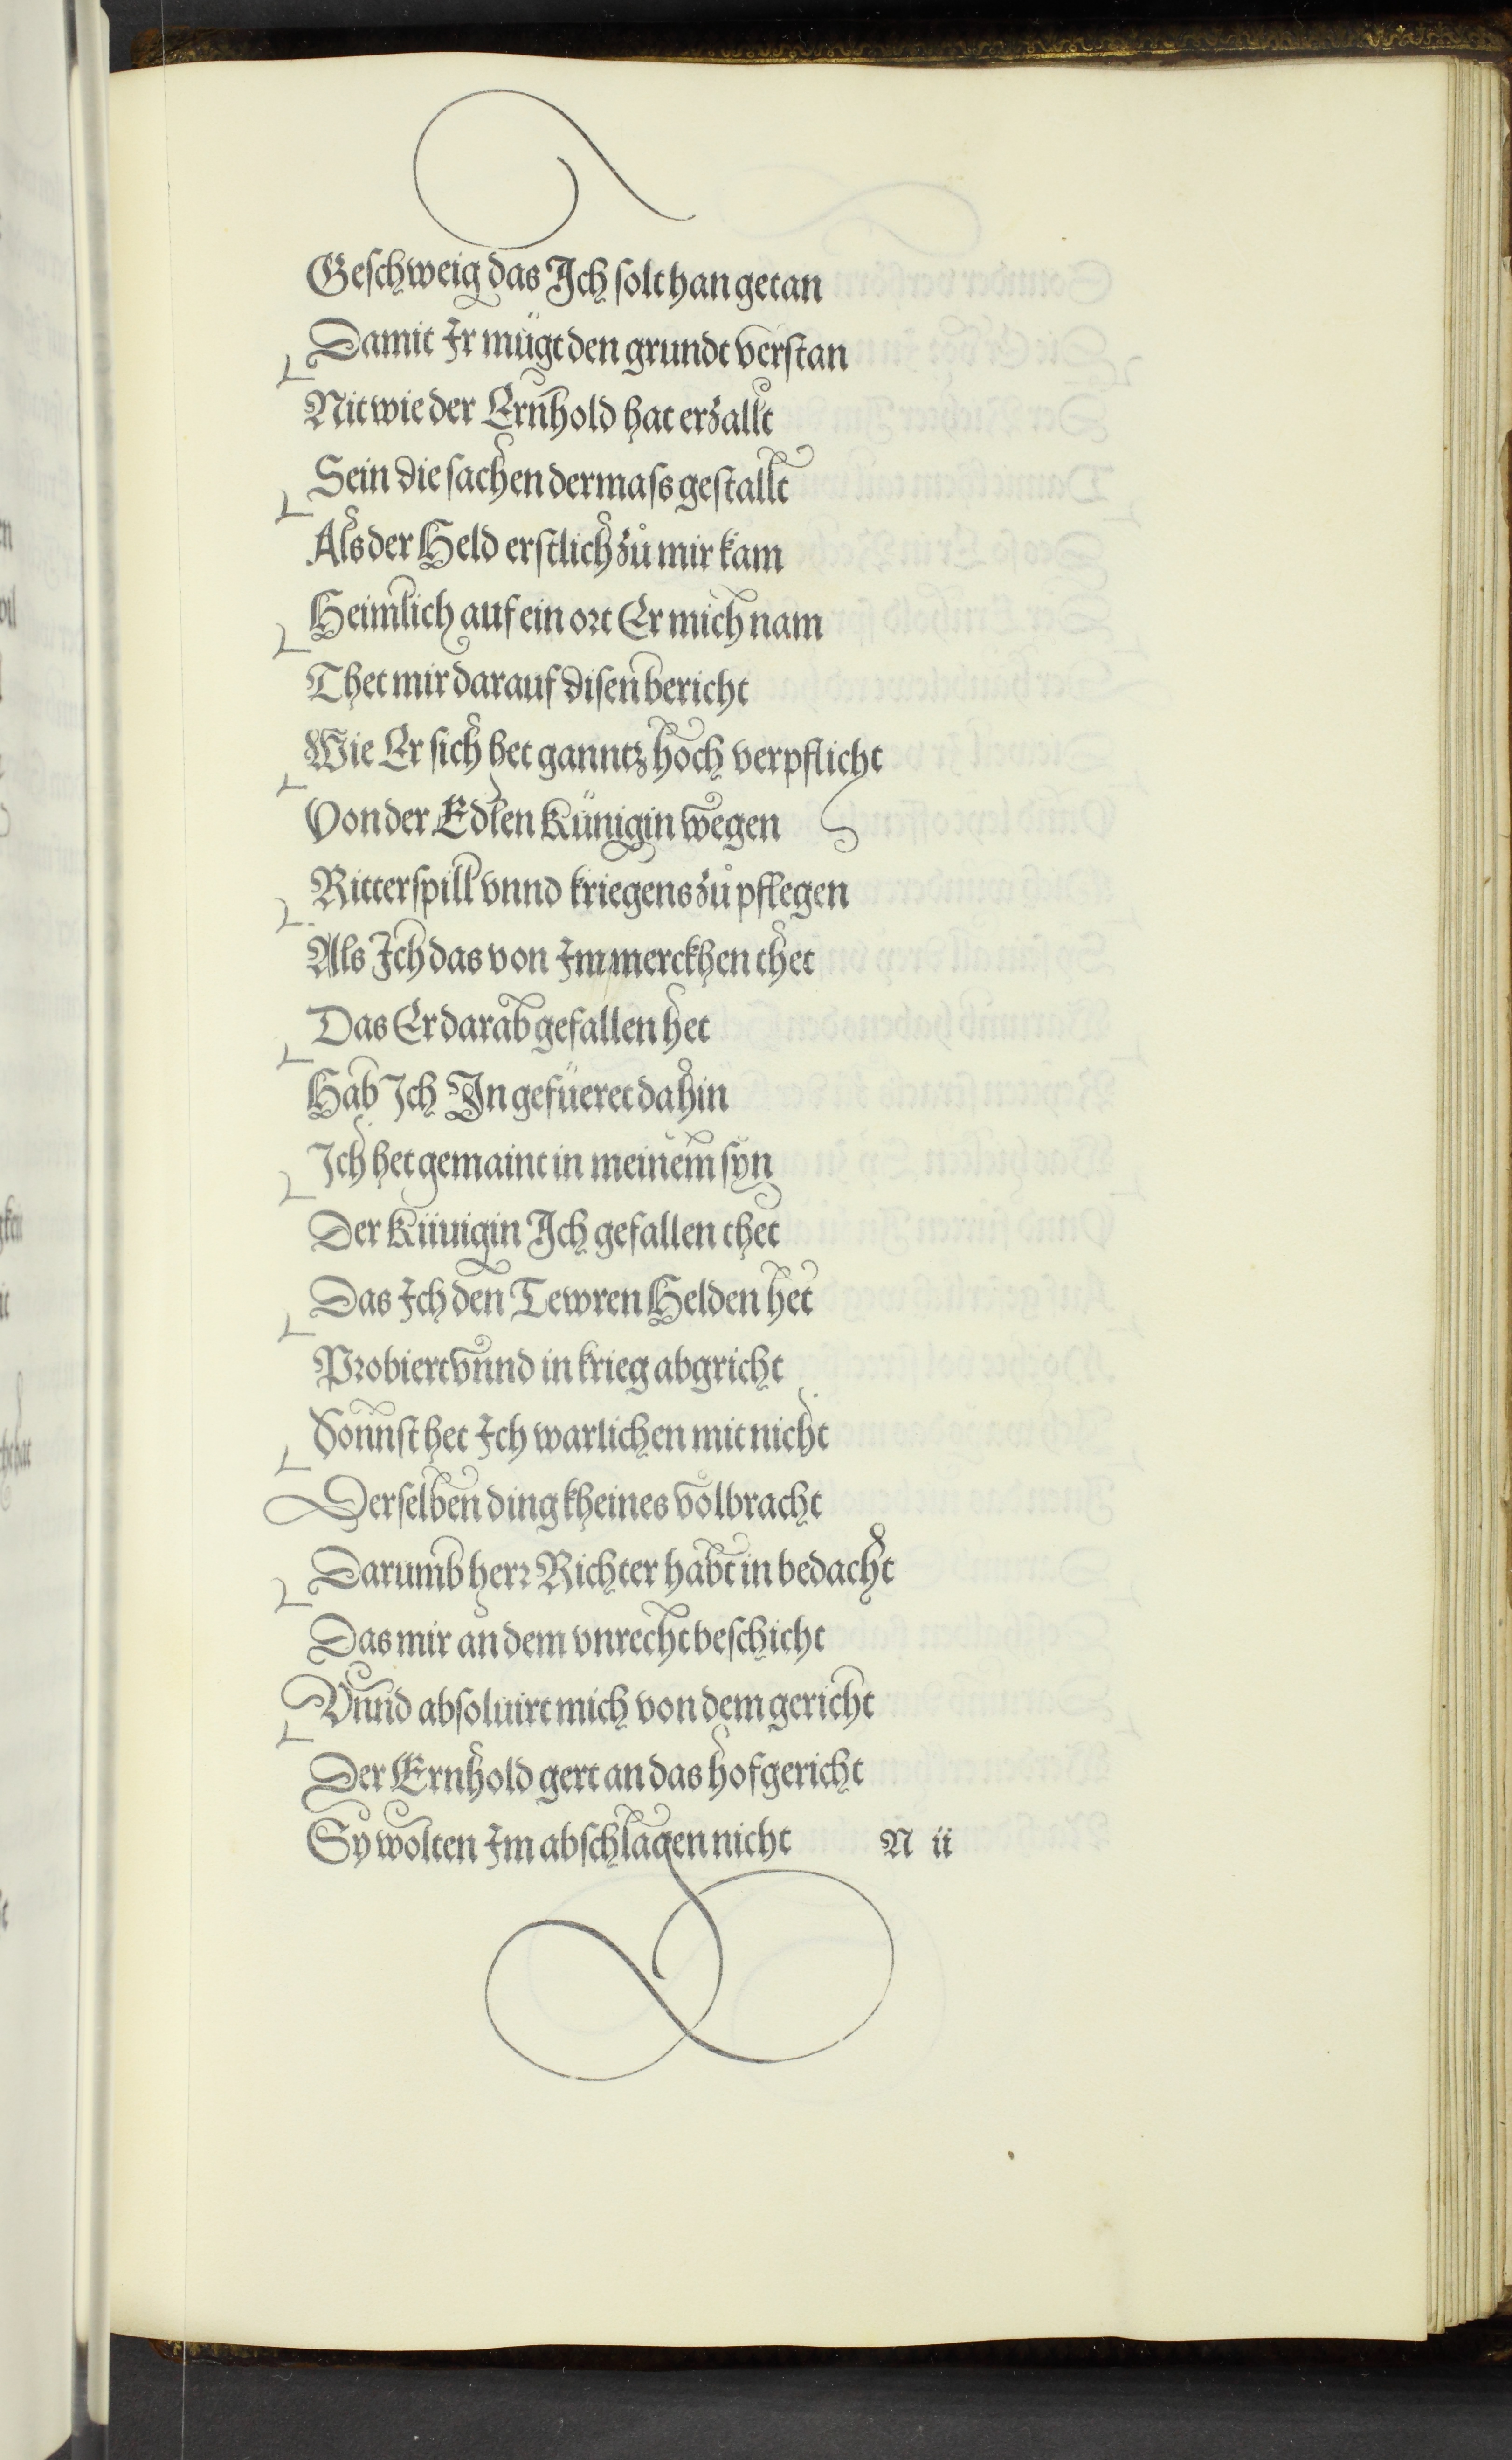 Geschweig das Ich solt han getan
Damit Ir mügt den grundt verstan
Nit wie der Ernhold hat erzallt
Sein die sachen dermass gestallt
Als der Held erstlich zů mir kam
Heimlich auf ein ort Er mich nam
Thet mir darauf disen bericht
Wie Er sich het ganntz hoch verpflicht
Von der Edlen Künigin wegen
Ritterspill vnnd kriegens zů pflegen
Als Ich das von Im merckhen thet
Das Er darab gefallen het
Hab Ich In gefüeret dahin
Ich het gemaint in meinem syn
Der Künigin Ich gefallen thet
Das Ich den Tewren Helden het
Probiert vnnd in krieg abgricht
Sonnst het Ich warlichen mit nicht
Derselben ding kheines volbracht
Darumb herr Richter habt in bedacht
Das mir an dem vnrecht beschicht
Vnnd absoluirt mich von dem gericht
Der Ernhold gert an das hofgericht
Sy wolten Im abschlagen nicht N ii